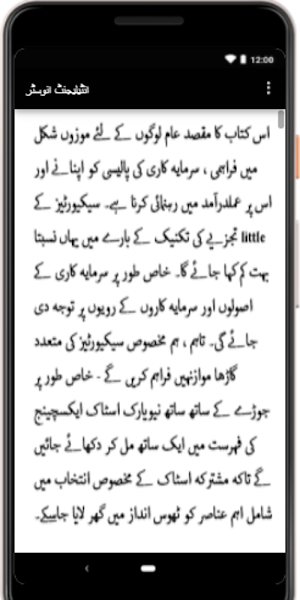 12:00
انٹیلیجنٹ انویسٹر
اس کتاب کا مقصد عام لوگوں کے لئے موزوں شکل
میں فراہمی ، سرمایہ کاری کی پالیسی کو اپنانے اور
اس پر عملدرآمد میں رہنمائی کرنا ہے۔ سیکیورٹیز کے
تجزیے کی تکنیک کے بارے میں یہاں نسبتا little
بہت کم کہا جائے گا۔ خاص طور پر سرمایہ کاری کے
اصولوں اور سرمایہ کاروں کے رویوں پر توجہ دی
جائے گی۔ تاہم ، ہم مخصوص سیکیورٹیز کی متعدد
گاڑھا موازنہیں فراہم کریں گے - خاص طور پر
جوڑے کے ساتھ ساتھ نیویارک اسٹاک ایکسچینج
کی فہرست میں ایک ساتھ مل کر دکھائے جائیں
گے تاکہ مشترکہ اسٹاک کے مخصوص انتخاب میں
شامل اہم عناصر کو ٹھوس انداز میں گھر لایا جاسکے۔